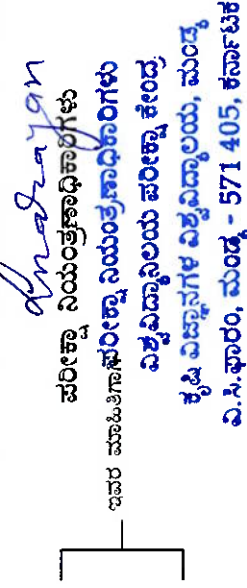 ಪರೀಕ್ಷಾ ನಿಯಂತ್ರಣಾಧಿಕಾರಿಗಳು
ಪರೀಕ್ಷಾ ನಿಯಂತ್ರಣಾಧಿಕಾರಿಗಳು
ಇವರ ಮಾಹಿತಿಗಾಗಿ
ವಿಶ್ವವಿದ್ಯಾನಿಲಯ ಪರೀಕ್ಷಾ ಕೇಂದ್ರ
ಕೃಷಿ ವಿಜ್ಞಾನಗಳ ವಿಶ್ವವಿದ್ಯಾಲಯ, ಮಂಡ್ಯ
ವಿ.ಸಿ. ಫಾರಂ, ಮಂಡ್ಯ - 571 405, ಕರ್ನಾಟಕ